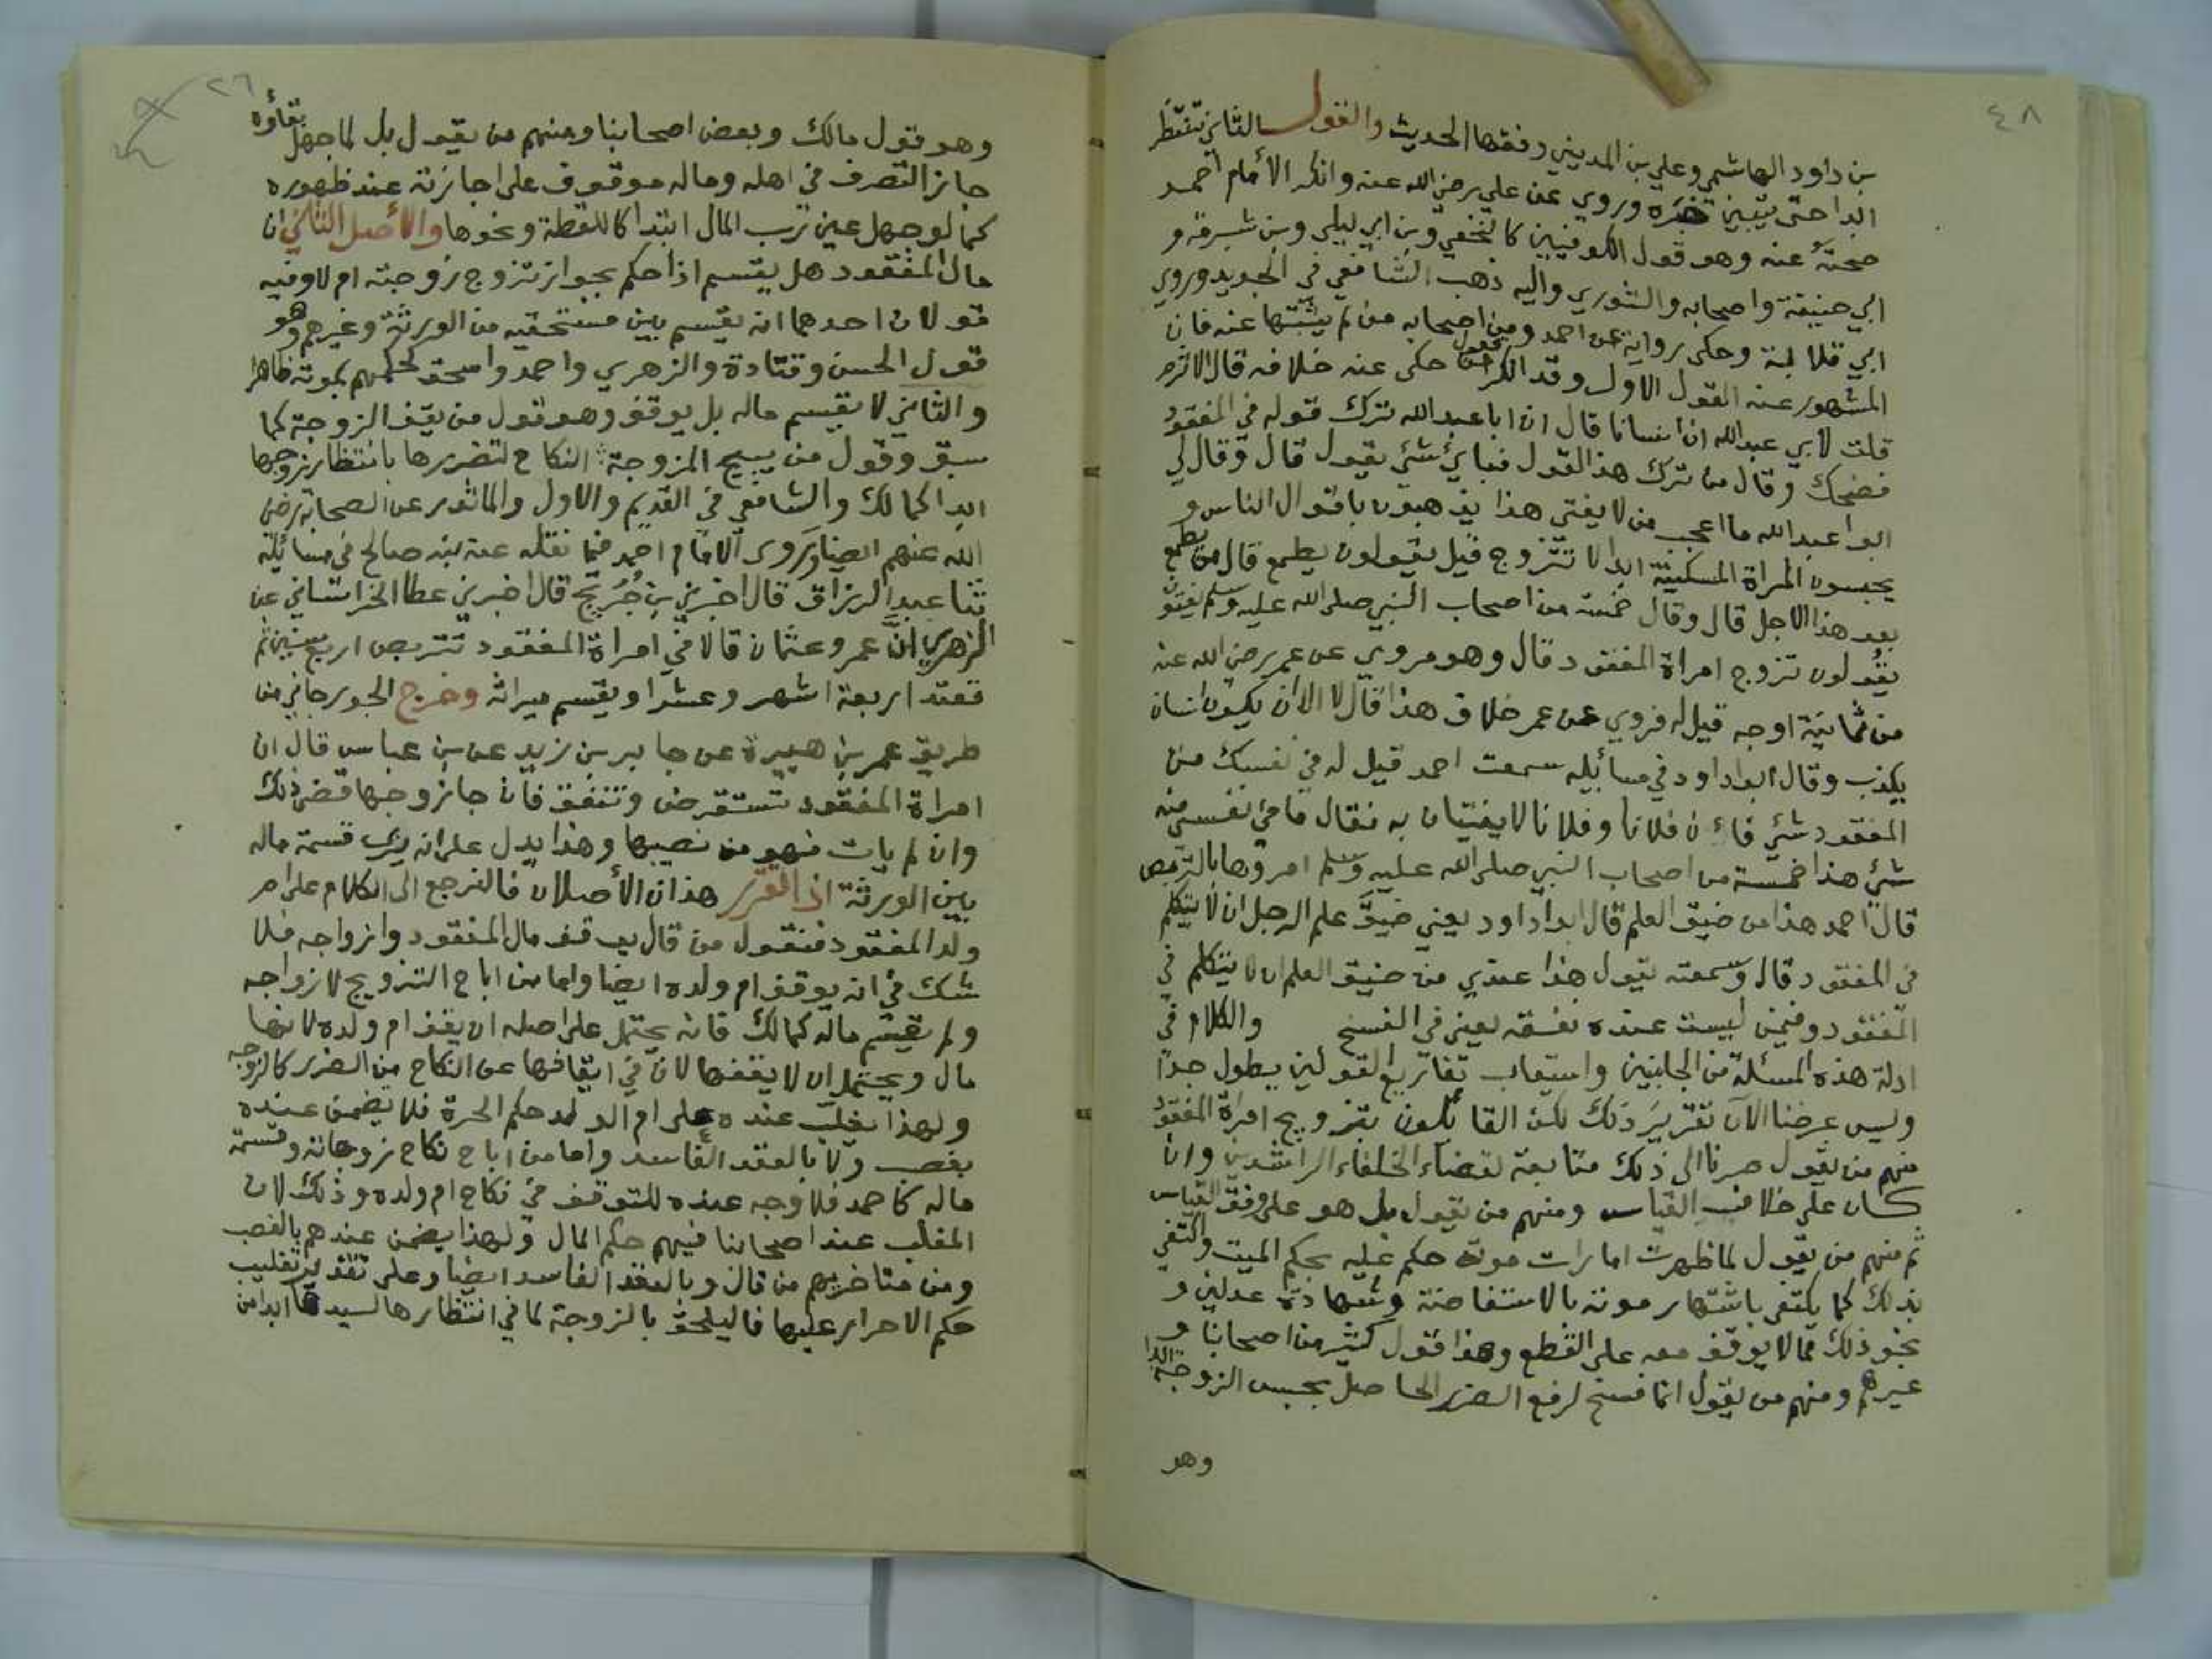 ٤٨
بن داود الهاشمي وعلي بن المديني وفقها الحديث والقول الثاني تنتظر
ابدا حتى يتبين خبره وروي عن علي رضي الله عنه وانكر الأمام احمد
صحته عنه وهو قول الكوفيين كالنخعي وبن ابي ليلى وبن شبرمه و
ابي حنيفة واصحابه والثوري واليه ذهب الشافعي في الجديد وروي
ابي قلابة وحكى رواية عن احمد ومن اصحابه من لم يثبتها عنه فان
المشهور عنه القول الاول وقد انكر من حكى عنه خلافه قال الاثرم
قلت لابي عبدالله ان انسانا قال ان ابا عبدالله ترك قوله في المفقود
فضحك وقال من ترك هذا القول فباي شئ يقول قال وقال لي
ابوا عبدالله ما اعجب من لا يفتي هذا يذهبون باقوال الناس و
يحبسون المراة المسكينة ابدا لا تتزوج قيل يقولون يطمع قال من يطمع
بعد هذا الاجل قال وقال خمسة من اصحاب النبي صلى الله عليه وسلم
يقولون تزوج امراة المفقود قال وهو مروي عن عمر رضي الله عنه
من ثمانية اوجه قيل له فروي عن عمر خلاف هذا قال لا الا ان يكون انسان
يكذب وقال ابوا داود في مسائيله سمعت احمد قيل له في نفسك من
المفقود شئ فائن فلانا وفلانا لا يفتيان به فقال ما في نفسي منه
شئ هذا خمسة من اصحاب النبي صلى الله عليه وسلم امروها بالتربص
قال احمد هذا من ضيق العلم قال ابوا داود يعني ضيق علم الرجل ان لا يتكلم
في المفقود قال وسمعته يقول هذا عندي من ضيق العلم ان لا يتكلم في
المفقود وفيمن ليست عنده نفقه يعني في الفسخ والكلام في
ادلة هذه المسئلة من الجانبين واستيعاب تفاريع القولين يطول جدا
وليس غرضنا الآن تقرير ذلك لكن القائلون بتزويج امراة المفقود
منهم من يقول صرنا الى ذلك متابعة لقضاء الخلفاء الراشدين وان
كان على خلاف القياس ومنهم من يقول بل هو على وفق القياس
ثم منهم من يقول لما ظهرت امارات موته حكم عليه بحكم الميت واكتفي
بذلك كما يكتفى باشتهار موته بالاستفاضة وشهادة عدلين و
نحو ذلك مما لا يوقف معه على القطع وهذا قول كثير من اصحابنا و
غيرهم ومنهم من يقول انما فسخ لرفع الضرر الحاصل بحبس الزوجة ابدا
وهو
٢٦
وهو قول مالك وبعض اصحابنا ومنهم من يقول بل لما جهل بقاؤه
جاز التصرف في اهله وماله موقوف على اجازته عند ظهوره
كما لو جهل عين رب المال ابتدا كاللقطة ونحوها والأصل الثاني ان
مال المفقود هل يقسم اذا حكم بجواز تزوج زوجته ام لا وفيه
قولان احدهما انه يقسم بين مستحقيه من الورثة وغيرهم وهو
قول الحسن وقتادة والزهري واحمد واسحق لحكمهم بموته ظاهرا
والثاني لا يقسم ماله بل يوقف وهو قول من يقف الزوجة كما
سبق وقول من يبيح المزوجة النكاح لتضررها بانتظار زوجها
ابدا كمالك والشافعي في القديم والاول والماثور عن الصحابة رضي
الله عنهم ايضا وروى الامام احمد فيما نقله عنه بنه صالح في مسائيله
ثنا عبدالرزاق قال اخبرني بن جُرَيج قال اخبرني عطا الخراساني عن
الزهري ان عمر وعثمان قالا في امراة المفقود تتربص اربع سنين ثم
تعتد اربعة اشهر وعشرا ويقسم ميراثه وخرج الجورجاني من
طريق عمر بن هبيرة عن جابر بن زيد عن بن عباس قال ان
امراة المفقود تستقرض وتنفق فان جا زوجها قضى ذلك
وان لم يات فهو من نصيبها وهذا يدل على انه يرى قسمة ماله
بين الورثة اذا تقرر هذان الأصلان فالنرجع الى الكلام على ام
ولد المفقود فنقول من قال يوقف مال المفقود وازواجه فلا
شك في انه يوقف ام ولده ايضا واما من اباح التزويج لازواجه
ولم يقسم ماله كمالك فانه يحتمل على اصله ان يقف ام ولده لانها
مال ويحتمل ان لا يقفها لان في ايقافها عن النكاح من الضرر كالزوجه
ولهذا يغلب عنده على ام الولد حكم الحرة فلا يضمن عنده
بغصب ولا بالعقد الفاسد واما من اباح نكاح زوجاته وقسمة
ماله كاحمد فلا وجه عنده للتوقف في نكاح ام ولده وذلك لان
المغلب عند اصحابنا فيهم حكم المال ولهذا يضمن عندهم بالغصب
ومن متاخريهم من قال وبالعقد الفاسد ايضا وعلى تقدير تغليب
حكم الاحرار عليها فاليلحق بالزوجة لما في انتظارها لسيدها ابدا من